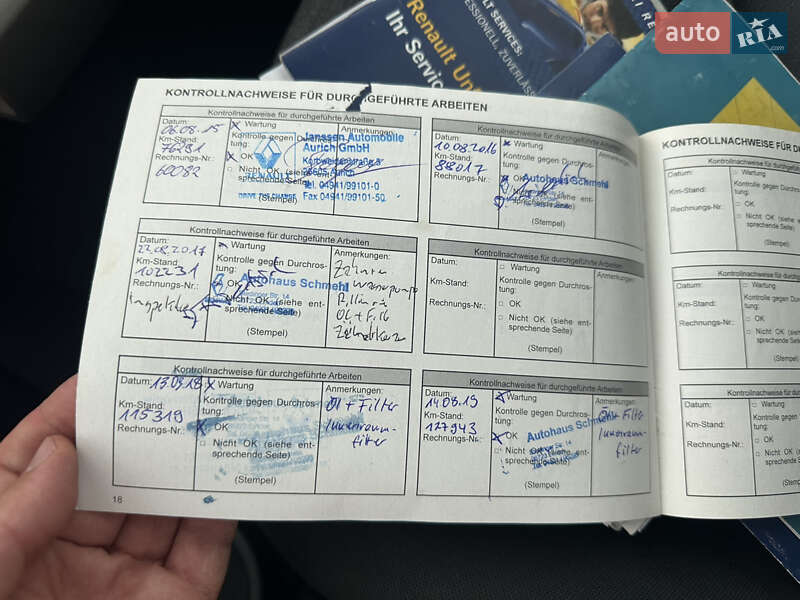 Renault
Ihr Servic
LT SERVICES:
auto RIA
.com
KONTROLLNACHWEISE FÜR DURCHGEFÜHRTE ARBEITEN
Kontrollnachweise für durchgeführte Arbeiten
Datum: 06.08.15
Km-Stand: 76291
Rechnungs-Nr.: 60082
x Wartung
Kontrolle gegen Durchros-
tung:
x OK
Nicht OK (siehe ent-
sprechende Seite)
(Stempel)
Anmerkungen:
Janssen Automobile
Aurich GmbH
Tel. 04941/99101-0
Fax 04941/99101-50
RENAULT
DRIVE THE CHANGE
Kontrollnachweise für durchgeführte Arbeiten
Datum: 10.08.2016
Km-Stand: 88017
Rechnungs-Nr.:
x Wartung
Kontrolle gegen Durchros-
tung:
x OK
Nicht OK (siehe ent-
sprechende Seite)
(Stempel)
Anmerkungen:
Autohaus Schmehl
Kontrollnachweise für durchgeführte Arbeiten
Datum: 22.08.2017
Km-Stand: 102231
Rechnungs-Nr.:
Wartung
Kontrolle gegen Durchros-
tung:
OK
Nicht OK (siehe ent-
sprechende Seite)
(Stempel)
Autohaus Schmehl
Anmerkungen:
Zahnr
Wasserpumpe
Öl + Filt
Zündkerze
Kontrollnachweise für durchgeführte Arbeiten
Datum:
Km-Stand:
Rechnungs-Nr.:
Wartung
Kontrolle gegen Durchros-
tung:
OK
Nicht OK (siehe ent-
sprechende Seite)
(Stempel)
Anmerkungen:
Kontrollnachweise für durchgeführte Arbeiten
Datum: 13.09.18
Km-Stand: 115319
Rechnungs-Nr.:
x Wartung
Kontrolle gegen Durchros-
tung:
x OK
Nicht OK (siehe ent-
sprechende Seite)
(Stempel)
Anmerkungen:
Öl + Filter
Innenraum-
filter
Kontrollnachweise für durchgeführte Arbeiten
Datum: 14.08.19
Km-Stand: 127943
Rechnungs-Nr.:
x Wartung
Kontrolle gegen Durchros-
tung:
x OK
Nicht OK (siehe ent-
sprechende Seite)
(Stempel)
Autohaus Schmehl
Anmerkungen:
Filter
Innenraum-
filter
18
KONTROLLNACHWEISE FÜR D
Kontrollnachweise für du
Datum:
Km-Stand:
Rechnungs-Nr.:
Wartung
Kontrolle gegen Du
tung:
OK
Nicht OK (siehe
sprechende Seite)
(Stempel)
Kontrollnachweise für du
Datum:
Km-Stand:
Rechnungs-Nr.:
Wartung
Kontrolle gegen
tung:
OK
Nicht OK (siehe
sprechende Seite)
(Stempel)
Kontrollnachweise für du
Datum:
Km-Stand:
Rechnungs-Nr.:
Wartung
Kontrolle gegen
tung:
OK
Nicht OK (siehe
sprechende Seite)
(Stempel)